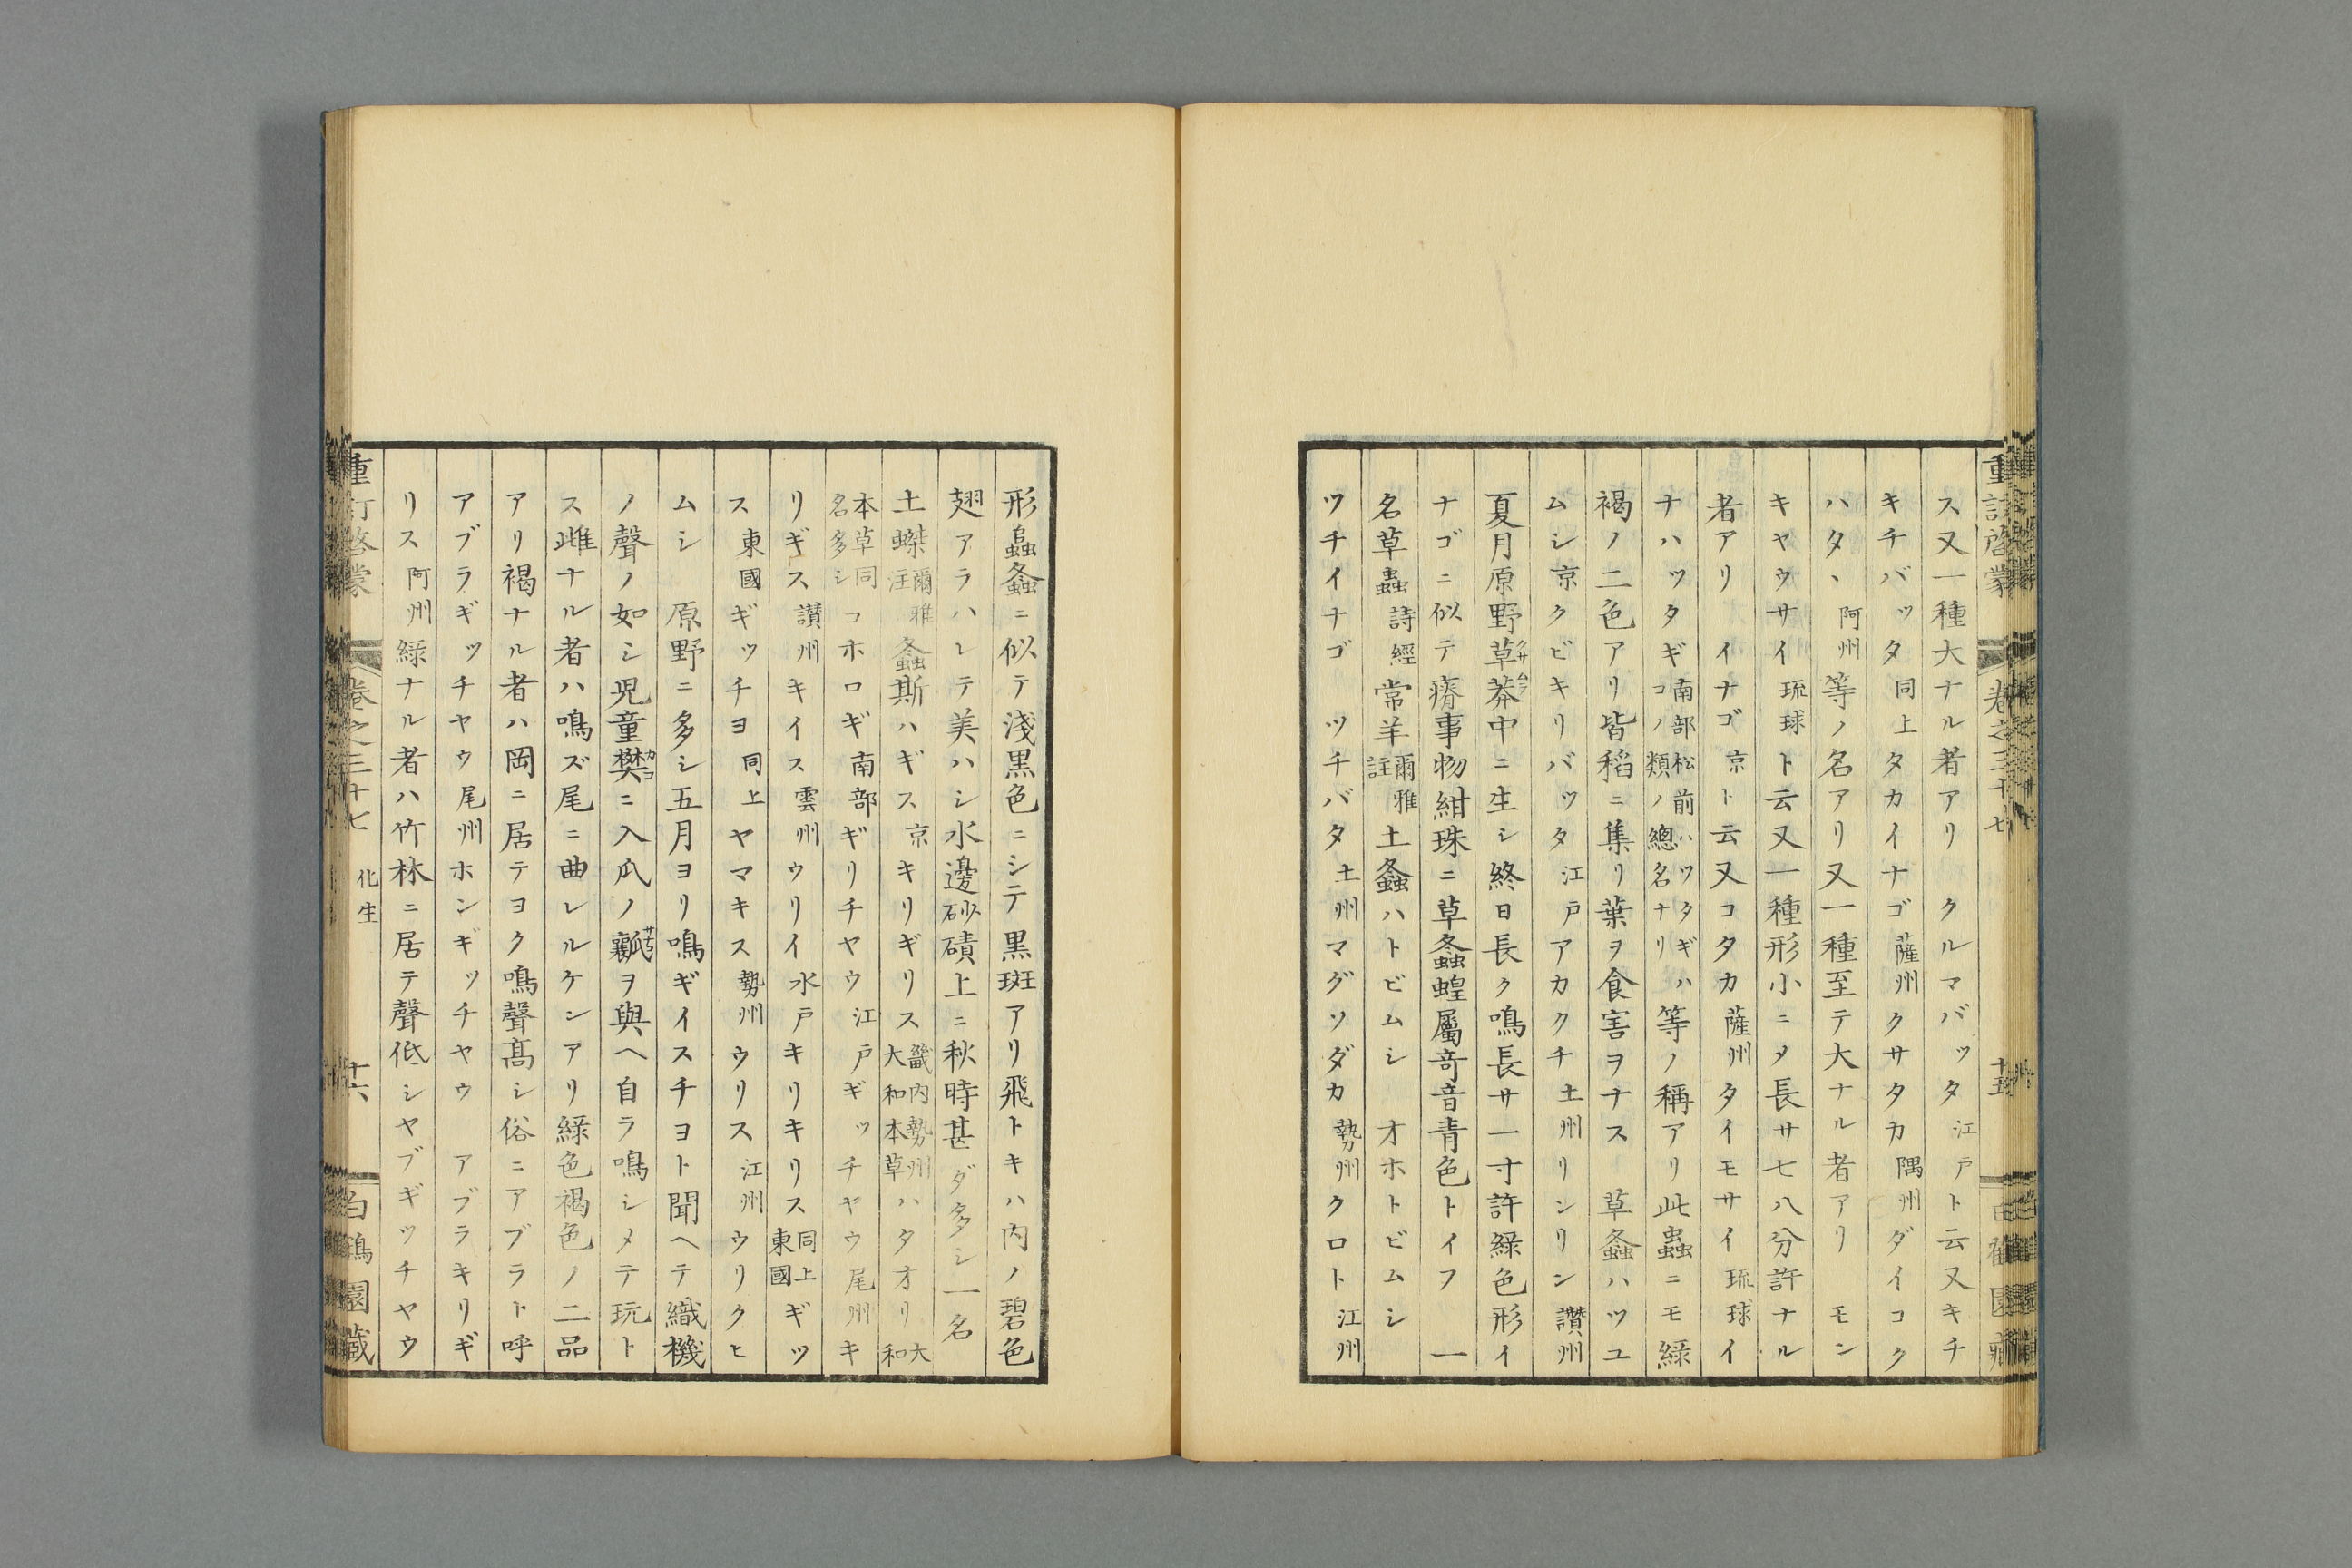 重訂啓蒙 卷之三十七 十五
ス又一種大ナル者アリ クルマバッタ江戸ト云又キチ
キチバッタ同上タカイナゴ薩州クサタカ隅州ダイコク
ハタヽ阿州等ノ名アリ又一種至テ大ナル者アリ モン
キャウサイ琉球ト云又一種形小ニメ長サ七八分許ナル
者アリ イナゴ京ト云又コタカ薩州タイモサイ琉球イ
ナハッタギ南部松前ハッタギハコノ類ノ總名ナリ等ノ稱アリ此蟲ニモ緑
褐ノ二色アリ皆稻ニ集リ葉ヲ食害ヲナス 草螽ハツユ
ムシ京クビキリバッタ江戸アカクチ土州リンリン讃州
夏月原野草莽中ニ生シ終日長ク鳴長サ一寸許緑色形イ
ナゴニ似テ瘠事物紺珠ニ草螽蝗屬奇音青色トイフ 一
名草蟲詩經常羊爾雅註土螽ハトビムシ オホトビムシ
ツチイナゴ ツチバタ土州マグソダカ勢州クロト江州
形蟲螽ニ似テ淺黒色ニシテ黒斑アリ飛トキハ内ノ碧色
翅アラハレテ美ハシ水邊砂磧上ニ秋時甚ダ多シ一名
土蠑爾雅注螽斯ハギス京キリギリス畿内勢州大和本草ハタオリ大和
本草同名多シコホロギ南部ギリチヤウ江戸ギッチヤウ尾州キ
リギス讃州キイス雲州ウリイ水戸キリキリス同上東國ギッ
ス東國ギッチヨ同上ヤマキス勢州ウリス江州ウリクヒ
ムシ 原野ニ多シ五月ヨリ鳴ギイスチヨト聞ヘテ織機
ノ聲ノ如シ児童樊ニ入瓜ノ瓤ヲ與ヘ自ラ鳴シメテ玩ト
ス雌ナル者ハ鳴ズ尾ニ曲レルケンアリ緑色褐色ノ二品
アリ褐ナル者ハ岡ニ居テヨク鳴聲髙シ俗ニアブラト呼
アブラギッチヤウ尾州ホンギッチヤウ アブラキリギ
リス阿州緑ナル者ハ竹林ニ居テ聲低シヤブギッチヤウ
重訂啓蒙 卷之三十七 化生 十六 白鶴園藏